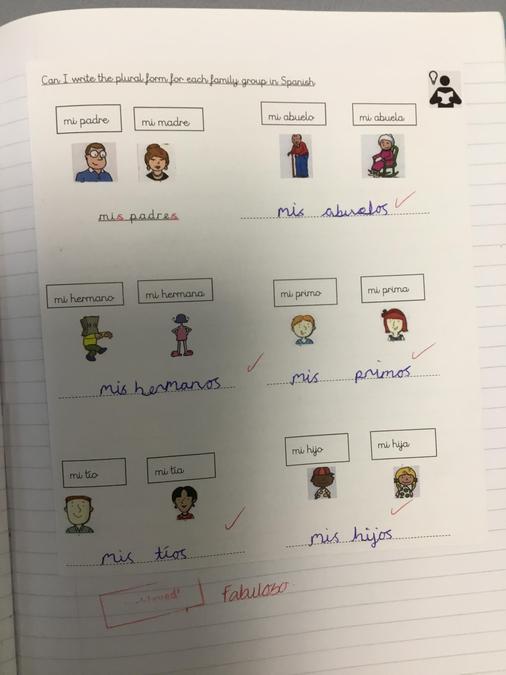 Can I write the plural form for each family group in Spanish
mi padre mi madre mi abuelo mi abuela
mis padres mis abuelos
mi hermano mi hermana mi primo mi prima
mis hermanos mis primos
mi tío mi tía mi hijo mi hija
mis tíos mis hijos
Fabuloso